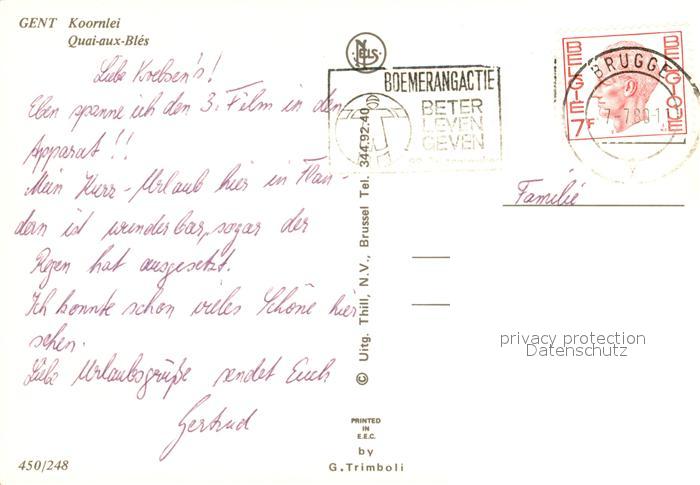 GENT Koornlei
Quai-aux-Blés
Liebe Krebsen's!
Eben spanne ich den 3. Film in den
Apparat!!
Mein Kurz-Urlaub hier in Flan-
dern ist wunderbar, sogar der
Regen hat ausgesetzt.
Ich konnte schon vieles Schöne hier
sehen.
Liebe Urlaubsgrüße sendet Euch
Gertrud
450/248
NELS
© Uitg. Thill, N.V., Brussel Tel. 344.92.40
PRINTED
IN
E.E.C.
by
G. Trimboli
BOEMERANGACTIE
BETER
LEVEN
GEVEN
BRUGGE
BELGIE 7F
BELGIQUE
Familie
privacy protection
Datenschutz